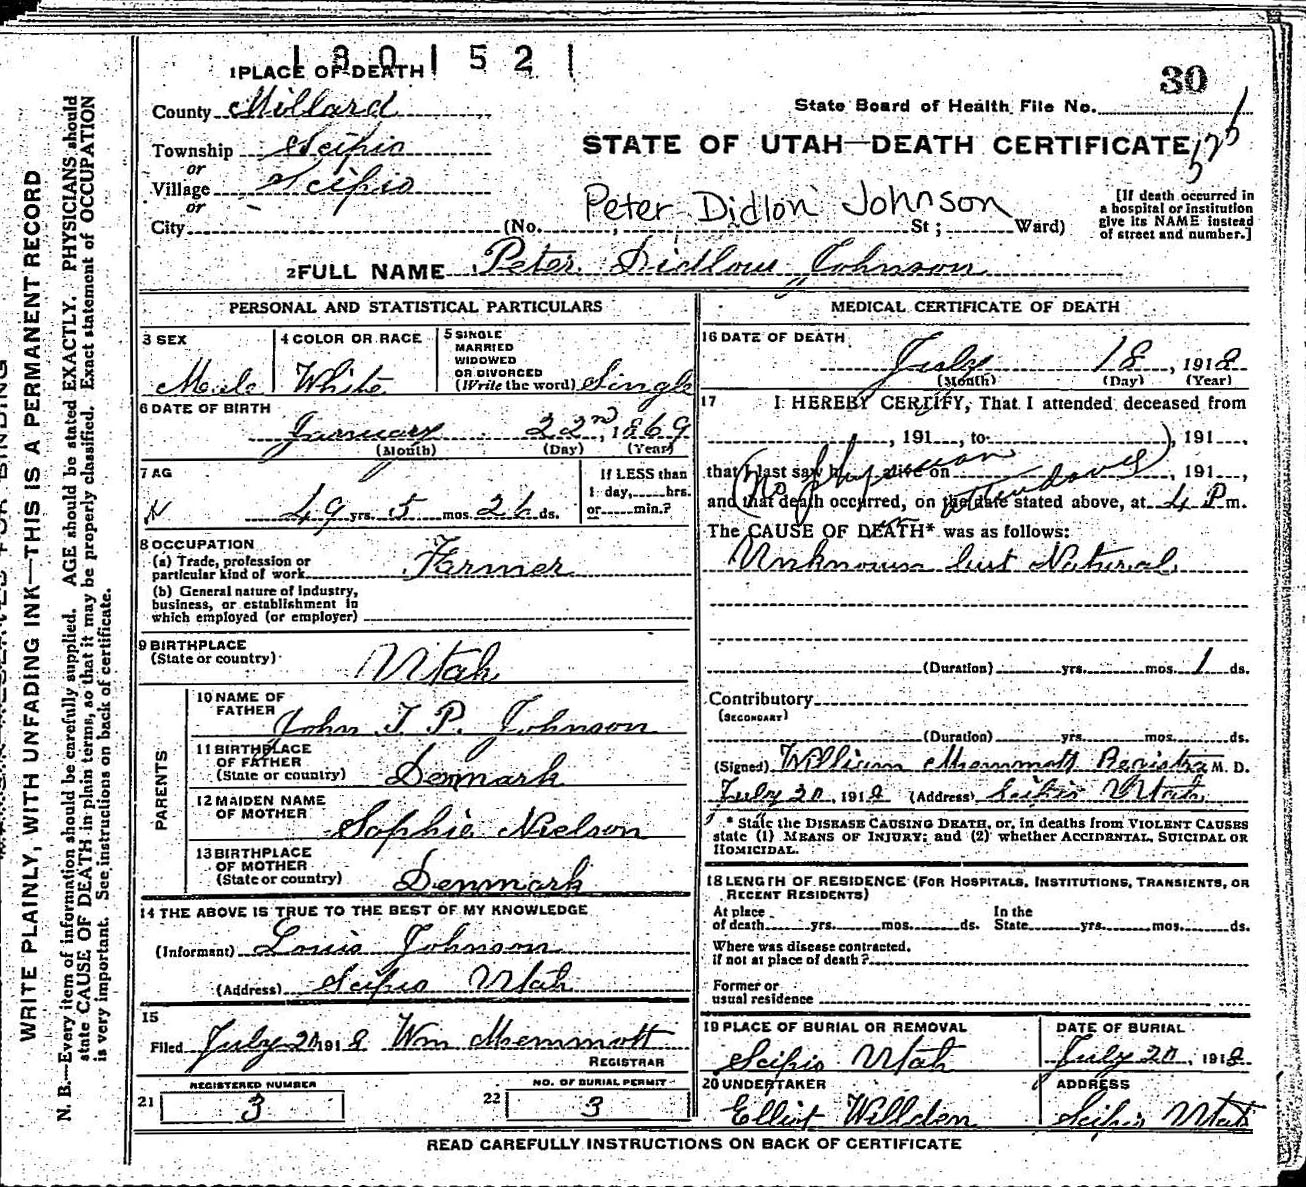 1 8 0 1 5 2 1
1 PLACE OF DEATH
30
County Millard
State Board of Health File No.
Township Scipio
STATE OF UTAH—DEATH CERTIFICATE
525
or
Village Scipio
or
City (No. St; Ward)
Peter Didlon Johnson
[If death occurred in
a hospital or institution
give its NAME instead
of street and number.]
2 FULL NAME Peter Didlow Johnson
PERSONAL AND STATISTICAL PARTICULARS
3 SEX
Male
4 COLOR OR RACE
White
5 SINGLE
MARRIED
WIDOWED
OR DIVORCED
(Write the word) Single
6 DATE OF BIRTH
January 22nd, 1869
(Month) (Day) (Year)
7 AG
49 yrs. 5 mos. 26 ds.
If LESS than
1 day, hrs.
or min.?
8 OCCUPATION
(a) Trade, profession or
particular kind of work Farmer
(b) General nature of industry,
business, or establishment in
which employed (or employer)
9 BIRTHPLACE
(State or country)
Utah
PARENTS
10 NAME OF
FATHER
John T. P. Johnson
11 BIRTHPLACE
OF FATHER
(State or country) Denmark
12 MAIDEN NAME
OF MOTHER
Sophie Nielson
13 BIRTHPLACE
OF MOTHER
(State or country) Denmark
14 THE ABOVE IS TRUE TO THE BEST OF MY KNOWLEDGE
(Informant) Louis Johnson
(Address) Scipio Utah
15
Filed July 20 1918 Wm Memmott
REGISTRAR
REGISTERED NUMBER
21 3
NO. OF BURIAL PERMIT
22 3
MEDICAL CERTIFICATE OF DEATH
16 DATE OF DEATH
July 18, 1918
(Month) (Day) (Year)
17 I HEREBY CERTIFY, That I attended deceased from
, 191 , to , 191 ,
that I last saw h alive on , 191 ,
(no physician
and that death occurred, on the date stated above, at 4 P m.
The CAUSE OF DEATH* was as follows:
Unknown but Natural
(Duration) yrs. mos. 1 ds.
Contributory
(SECONDARY)
(Duration) yrs. mos. ds.
(Signed) William Memmott Registrar M. D.
July 20, 1918 (Address) Scipio Utah
* State the DISEASE CAUSING DEATH, or, in deaths from VIOLENT CAUSES
state (1) MEANS OF INJURY; and (2) whether ACCIDENTAL, SUICIDAL OR
HOMICIDAL.
18 LENGTH OF RESIDENCE (FOR HOSPITALS, INSTITUTIONS, TRANSIENTS, OR
RECENT RESIDENTS)
At place In the
of death yrs. mos. ds. State yrs. mos. ds.
Where was disease contracted,
if not at place of death?
Former or
usual residence
19 PLACE OF BURIAL OR REMOVAL
Scipio Utah
DATE OF BURIAL
July 20, 1918
20 UNDERTAKER
Elliot Willden
ADDRESS
Scipio Utah
READ CAREFULLY INSTRUCTIONS ON BACK OF CERTIFICATE
WRITE PLAINLY, WITH UNFADING INK—THIS IS A PERMANENT RECORD
N. B.—Every item of information should be carefully supplied. AGE should be stated EXACTLY. PHYSICIANS should
state CAUSE OF DEATH in plain terms, so that it may be properly classified. Exact statement of OCCUPATION
is very important. See instructions on back of certificate.